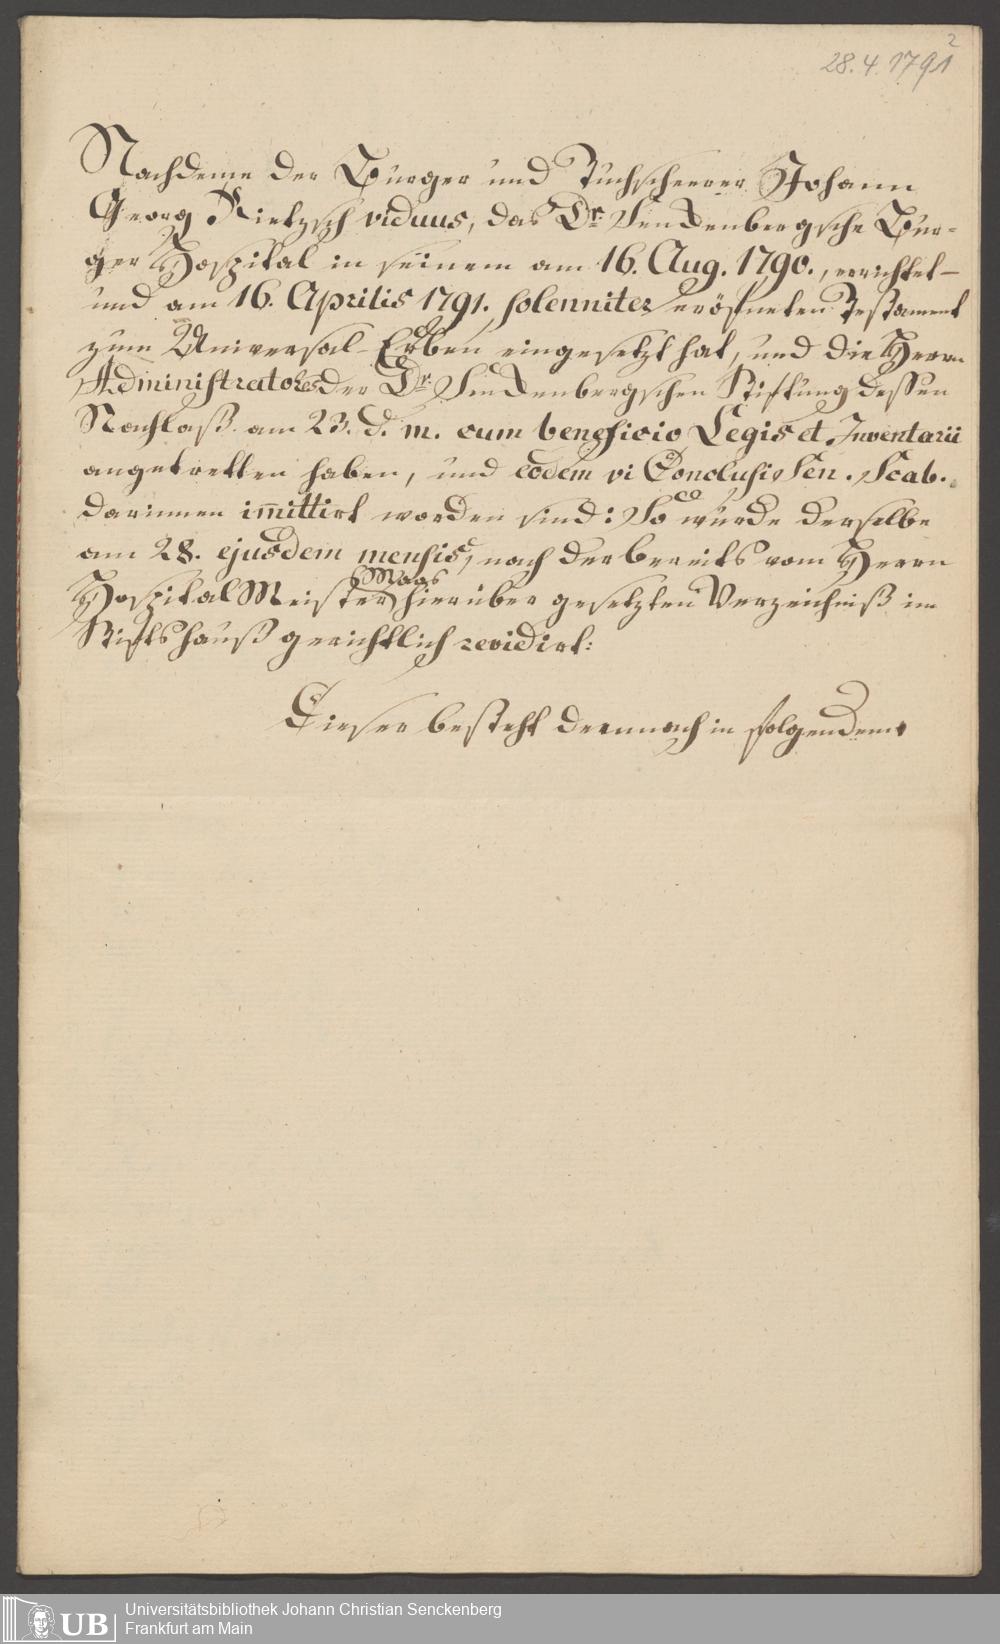 2
28.4.1791
Nachdeme der Burger und Tuchscheerer Johann
Georg Rietzsch viduus, das Dr. Senckenbergsche Bur-
ger Hospital in seinem am 16. Aug. 1790., errichtet-
und am 16. Aprilis 1791. solenniter eröfneten Testament
zum Universal-Erben eingesetzt hat, und die Herrn
Administratores der Dr. Senckenbergschen Stiftung dessen
Nachlaß am 23. d. m. cum beneficio Legis et Inventarii
angetretten haben, und eodem vi Conclusi Sen. Scab.
darinnen im̅ittirt worden sind: So wurde derselbe
am 28. ejusdem mensis, nach der bereits vom Herrn
Hospital Meister Maas hierüber gesetzten Verzeichniß im
Stiftshauß gerichtlich revidirt:
Dieser besteht demnach in folgendem
UB
Universitätsbibliothek Johann Christian Senckenberg
Frankfurt am Main